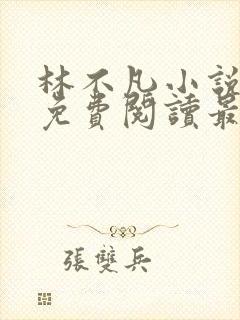 林不凡小說
免費閱讀最
張雙兵